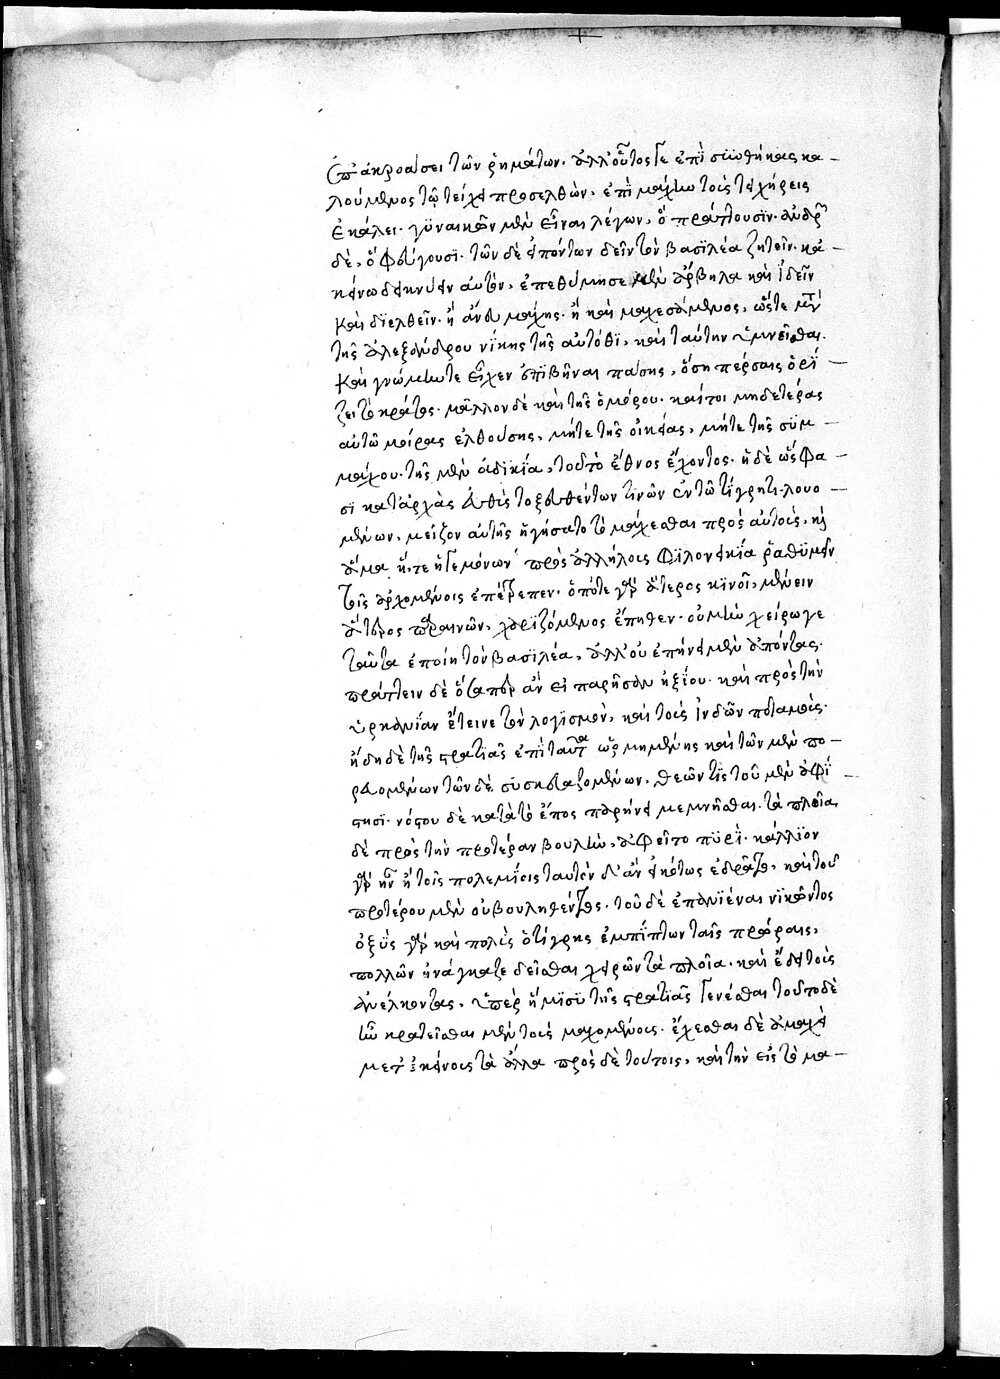 ἐπ' ἀκροάσει τῶν ῥημάτων. ἀλλ' οὗτος γε ἐπὶ συνθήκας κα
λούμενος τῷ τείχει προσελθὼν, ἐπὶ μάχην τοὺς τειχήρεις
ἐκάλει. γυναικῶν μὲν εἶναι λέγων, ὃ πράττουσιν. ἀνδρῶν
δὲ, ὃ φεύγουσι. τῶν δὲ εἰπόντων δεῖν τὸν βασιλέα ζητεῖν. κἀ
κείνῳ δεικνύειν αὐτὸν, ἐπεθύμησε μὲν ἄρβηλα καὶ ἰδεῖν
καὶ διελθεῖν. ἢ ἄνευ μάχης. ἢ καὶ μαχεσάμενος, ὥστε μετὰ
τῆς ἀλεξάνδρου νίκης τῆς αὐτόθι, καὶ ταύτην ὑμνεῖσθαι.
καὶ γνώμην τε εἶχεν ἐπιβῆναι πάσης, ὅση πέρσαις ὁρί
ζει τὸ κράτος. μᾶλλον δὲ καὶ τῆς ὁμόρου. καίτοι μηδετέρας
αὐτῷ μοίρας ἐλθούσης, μήτε τῆς οἰκείας, μήτε τῆς συμ
μάχου. τῆς μὲν ἀδικίᾳ, τοῦτο ἔθνος ἔχοντος. ἡ δὲ ὥς φα
σι κατ' ἀρχὰς εὐθὺς τοξευθέντων τινῶν ἐν τῷ τίγρητι λουο
μένων, μεῖζον αὐτῆς ἡγήσατο τὸ μάχεσθαι πρὸς αὐτοὺς, καὶ
ἅμα ἥ, τε ἡγεμόνων πρὸς ἀλλήλους φιλονεικία ῥαθυμεῖν
τοῖς ἀρχομένοις ἐπέτρεπεν. ὁπότε γὰρ ἅτερος κινοῖ, μένειν
ἅτερος παραινῶν, χαριζόμενος ἔπειθεν. οὐ μὴν χείρω γε
ταῦτα ἐποίει τὸν βασιλέα, ἀλλ' οὐ ἐπῄνει μὲν ἀπόντας.
πράττειν δὲ ὅσα περ ἂν εἰ παρῆσαν ἠξίου. καὶ πρὸς τὴν
ὑρκανίαν ἔτεινε τὸν λογισμὸν, καὶ τοὺς ἰνδῶν ποταμοὺς.
ἤδη δὲ τῆς στρατιᾶς ἐπὶ ταῦτα ὡρμημένης καὶ τῶν μὲν πο
ρευομένων τῶν δὲ συσκευαζομένων, θεῶν τις τοῦ μὲν ἀφί
στησι. νόστου δὲ κατὰ τὸ ἔπος παρῄνει μεμνῆσθαι. τὰ πλοῖα
δὲ πρὸς τὴν προτέραν βουλὴν, ἀφεῖτο πυρί. κάλλιον
γὰρ ἦν ἢ τοῖς πολεμίοις ταυτὸν δ' ἂν εἰκότως ἔδρασε, καὶ τοῦ
προτέρου μὲν οὐ βουληθέντος. τοῦ δὲ ἐπανιέναι νικῶντος
ὀξὺς γὰρ καὶ πολὺς ὁ τίγρης ἐμπίπτων ταῖς πρῴραις,
πολλῶν ἠνάγκαζε δεῖσθαι χειρῶν τὰ πλοῖα. καὶ ἔδει τοὺς
ἀνέλκοντας, ὑπὲρ ἥμισυ τῆς στρατιᾶς γενέσθαι τοῦτο δὲ
ἦν κρατεῖσθαι μὲν τοὺς μαχομένους. ἔχεσθαι δὲ ἀμαχεὶ
μετ' ἐκείνους τὰ ἄλλα πρὸς δὲ τούτοις, καὶ τὴν εἰς τὸ μα